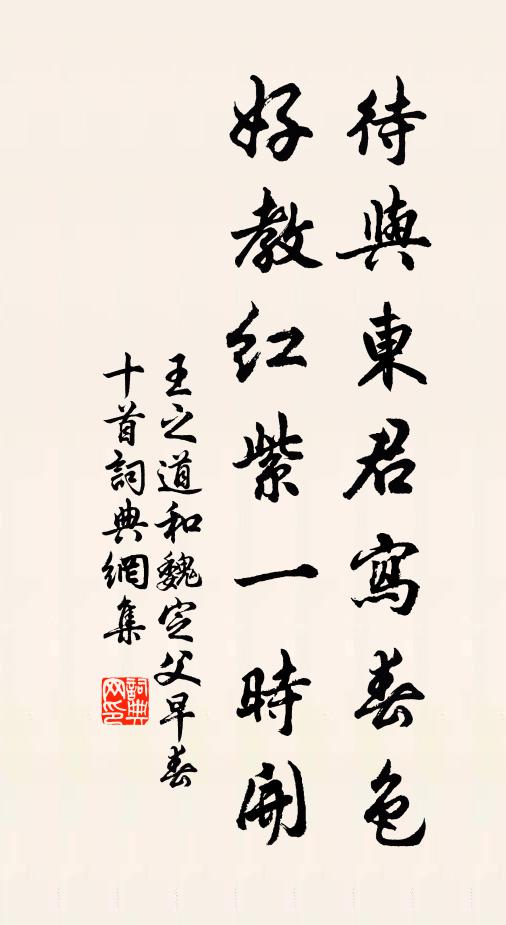 待與東君寫春色
好教红紫一時開
王之道和魏定父早春
十首詞典網集
詞典
网印